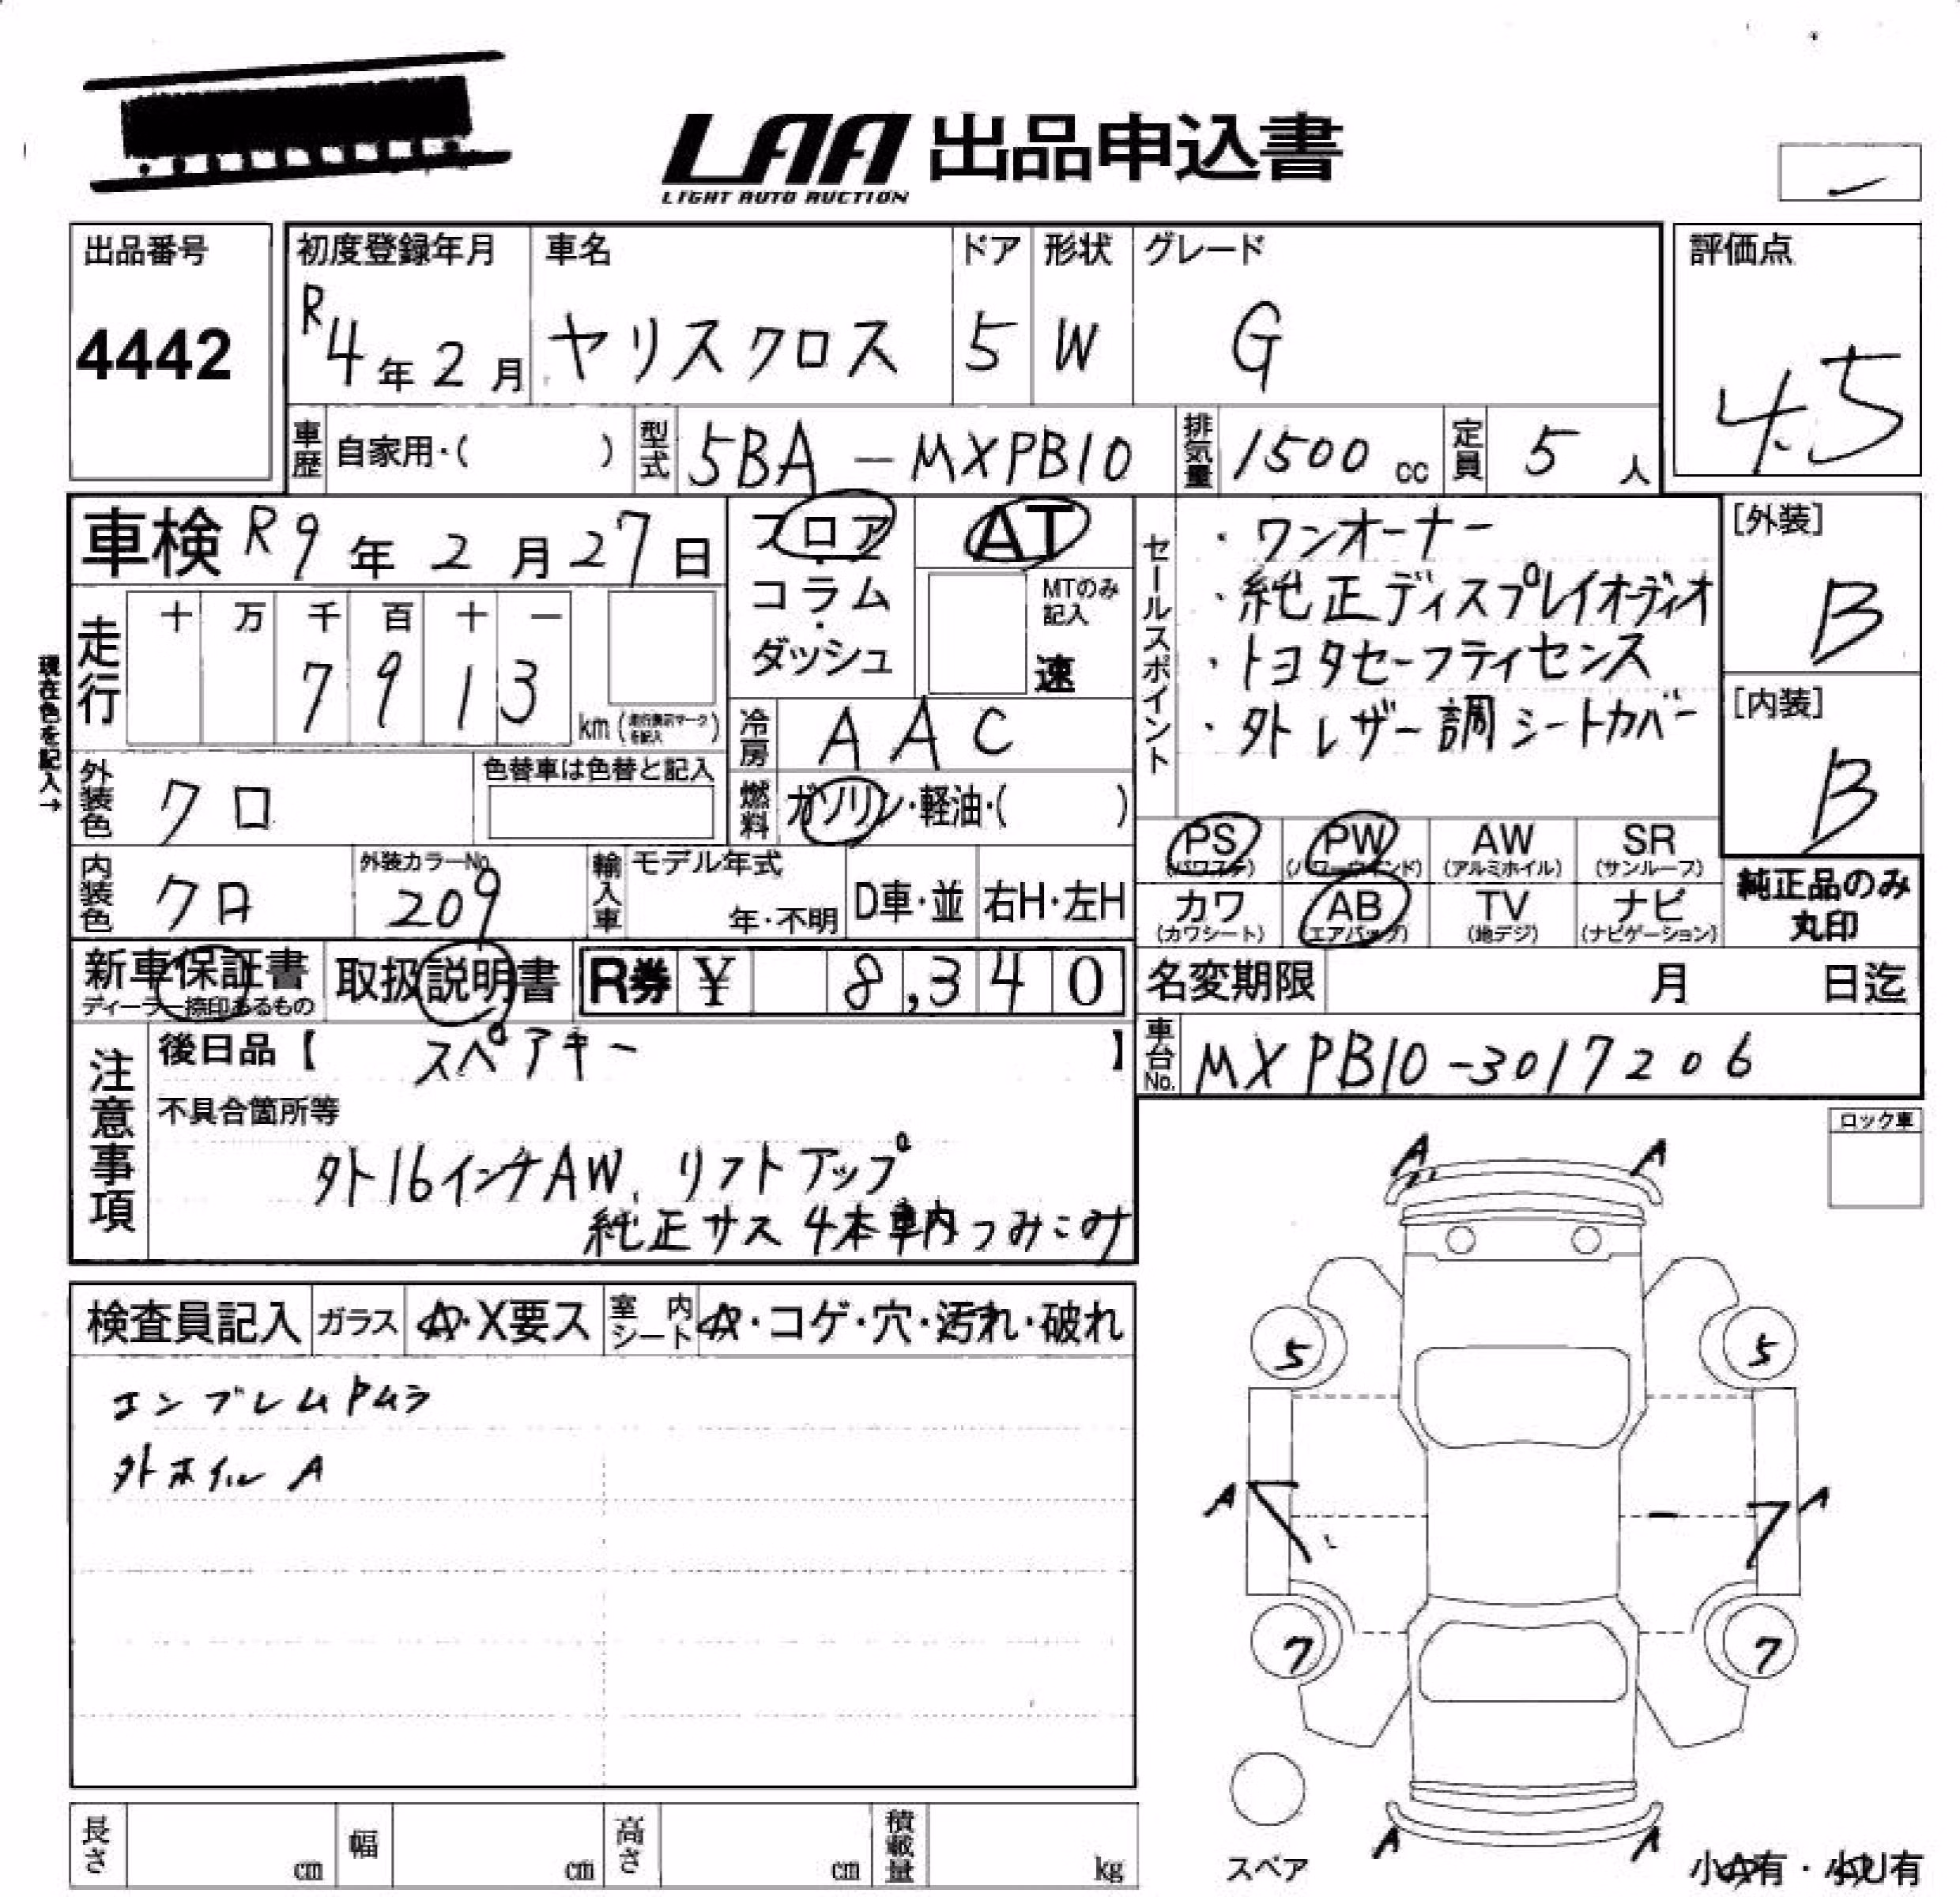 LAA 出品申込書
LIGHT AUTO AUCTION
出品番号
4442
初度登録年月
R4年2月
車名
ヤリスクロス
ドア
5
形状
W
グレード
G
評価点
4.5
車歴 自家用・( )
型式 5BA-MXPB10
排気量 1500 cc
定員 5人
車検 R9年2月27日
フロア・コラム・ダッシュ
AT
MTのみ記入
速
セールスポイント
・ワンオーナー
・純正ディスプレイオーディオ
・トヨタセーフティセンス
・外レザー調シートカバー
[外装]
B
[内装]
B
現在色を記入→
走行
十 万 千 百 十 一
7 9 1 3
km(走行表示マークを記入)
冷房 AAC
燃料 ガソリン・軽油・( )
外装色 クロ
色替車は色替と記入
内装色 クロ
外装カラーNo.
209
輸入車
モデル年式
年・不明
D車・並
右H・左H
PS (パワステ)
PW (パワーウインド)
AW (アルミホイル)
SR (サンルーフ)
カワ (カワシート)
AB (エアバッグ)
TV (地デジ)
ナビ (ナビゲーション)
純正品のみ
丸印
新車保証書
ディーラー捺印あるもの
取扱説明書
R券 ¥ 8,340
名変期限 月 日迄
車台No. MXPB10-3017206
注意事項
後日品【 スペアキー 】
不具合箇所等
外16インチAW、リフトアップ
純正サス4本車内つみこみ
ロック車
検査員記入
ガラス
A・X要ス
室内シート
A・コゲ・穴・汚れ・破れ
エンブレムPムラ
外ホイルA
A A
5 5
A A
7 7
A A
スペア
小A有・小U有
長さ cm
幅 cm
高さ cm
積載量 kg